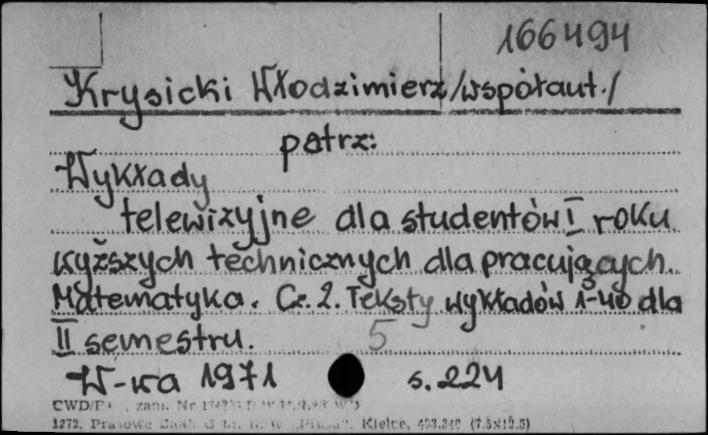 166494
Krysicki Włodzimierz /współaut./
patrz:
Wykłady
telewizyjne dla studentów I roku
wyższych technicznych dla pracujących.
Matematyka. Cz. 2. Teksty wykładów 1-40 dla
II semestru. 5
W-wa 1971 s. 224
CWD/ zam. Nr
1272. Prasowe Zakł. Kielce, (7.5x12.5)